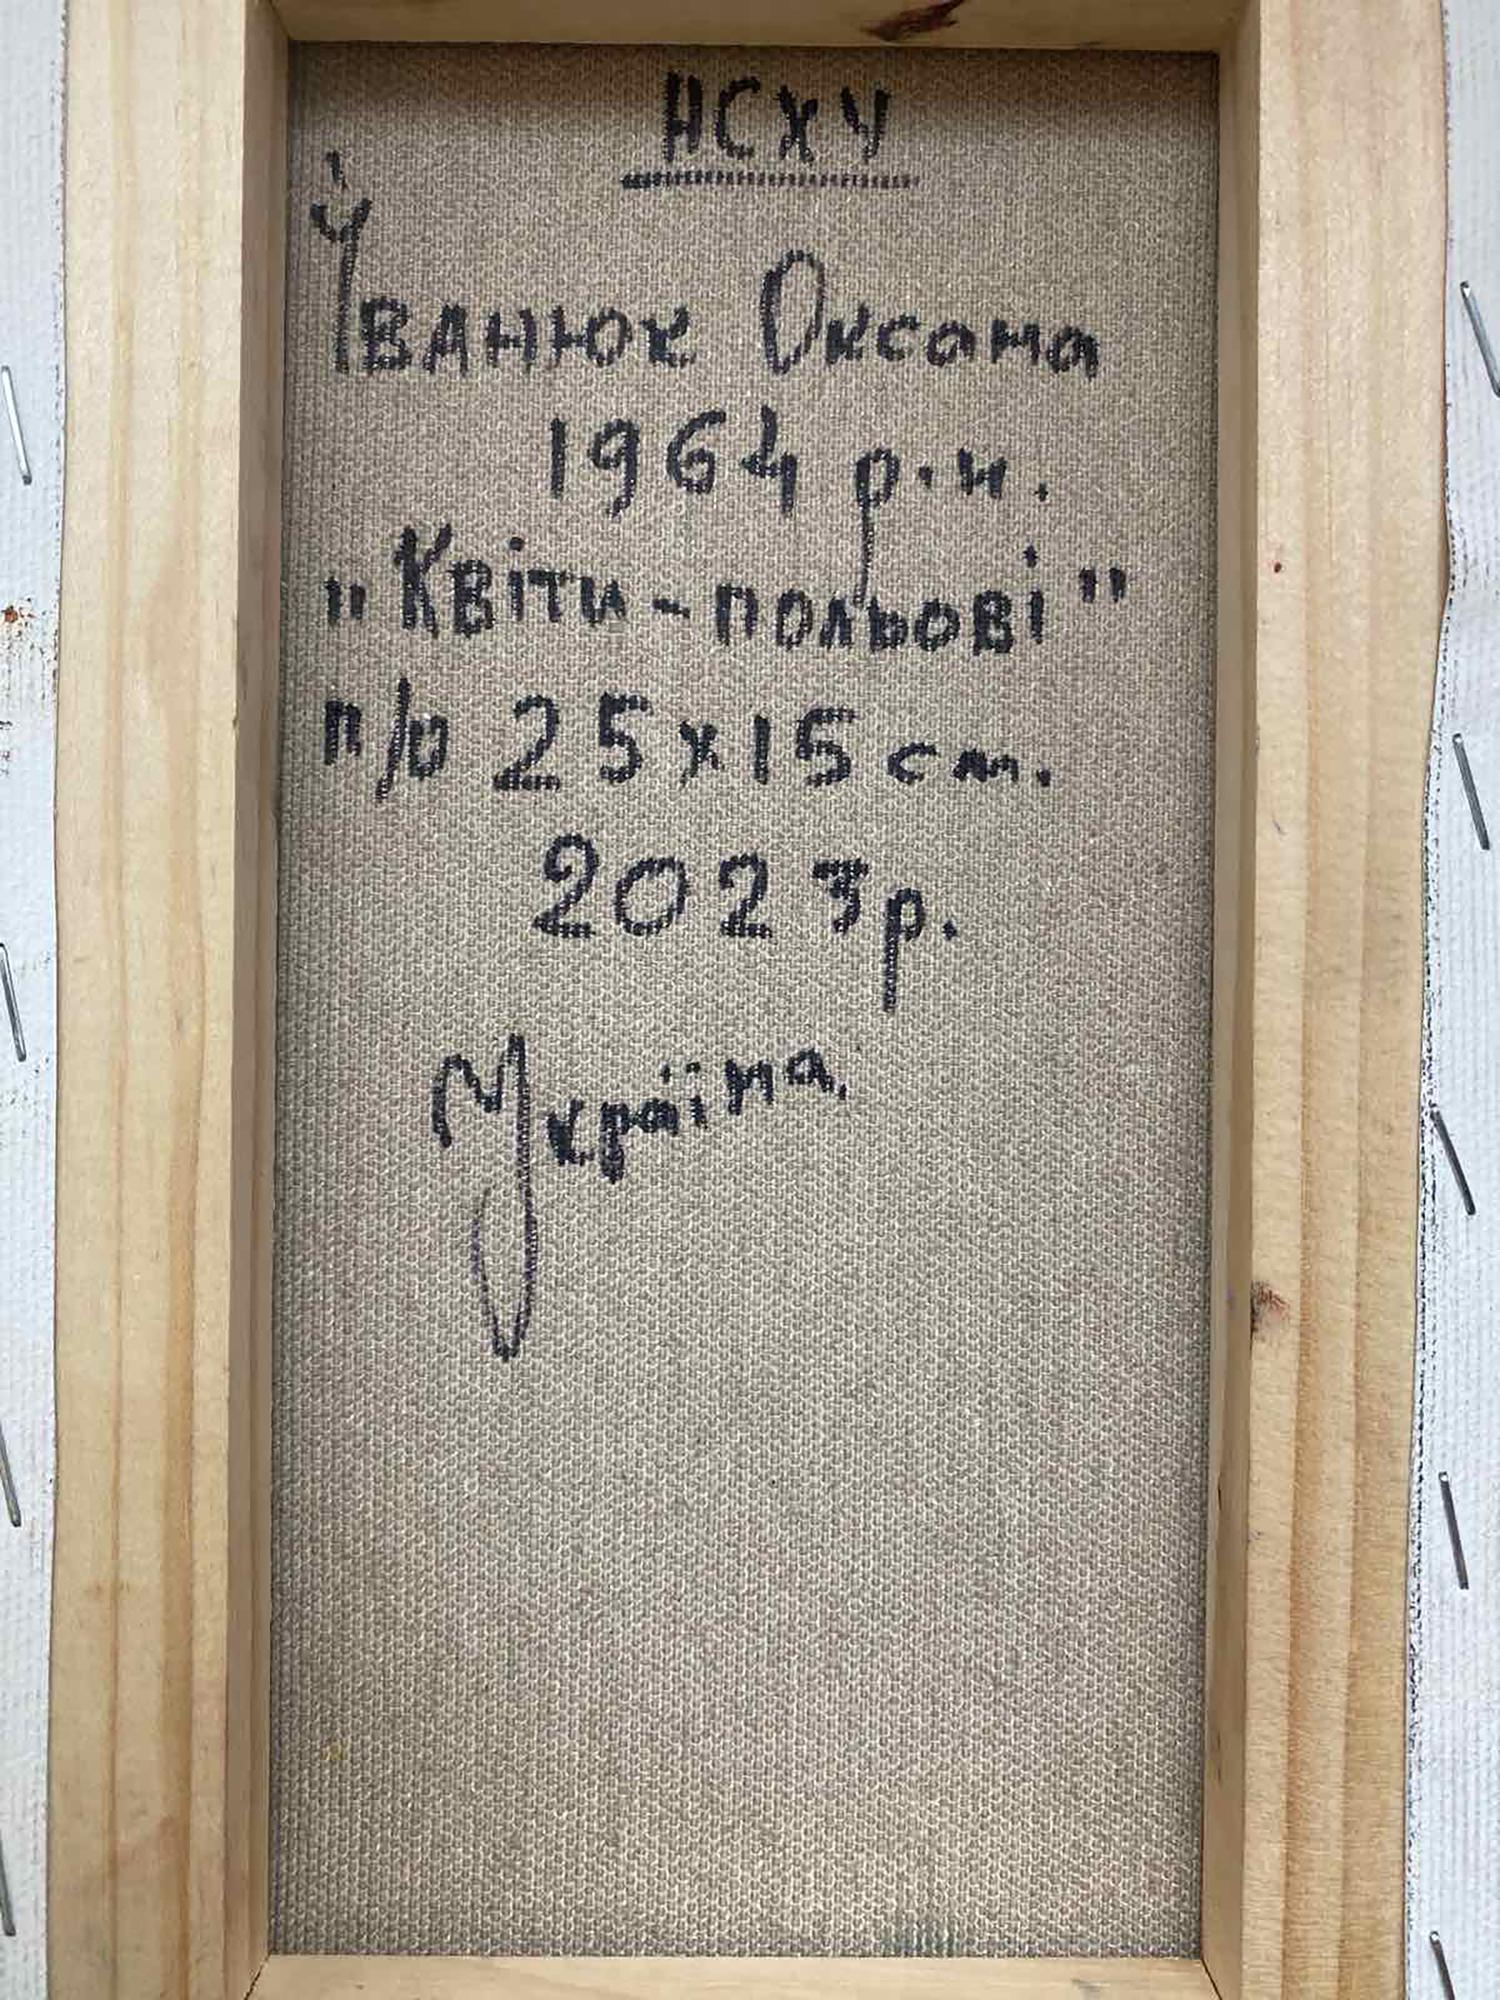 НСХУ
Іванюк Оксана
1964 р.н.
„Квіти-польові"
п/о 25х15 см.
2023р.
Україна.